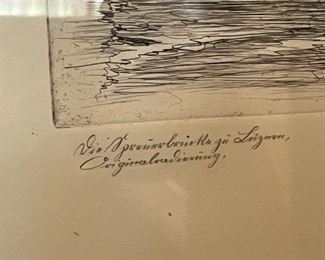 Die Spreuerbrücke zu Luzern,
Originalradierung.